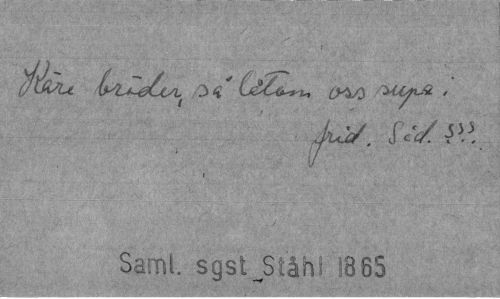 Käre bröder, så låtom oss supa i
frid. Sid. ???
Saml. sgst Ståhl 1865